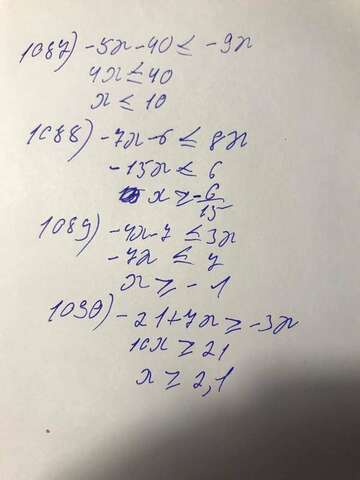 1087) -5x-40 ≤ -9x
4x ≤ 40
x ≤ 10
1088) -7x-6 ≤ 8x
-15x ≤ 6
x ≥ -6/15
1089) -4x-7 ≤ 3x
-7x ≤ 7
x ≥ -1
1090) -21+7x ≥ -3x
10x ≥ 21
x ≥ 2,1